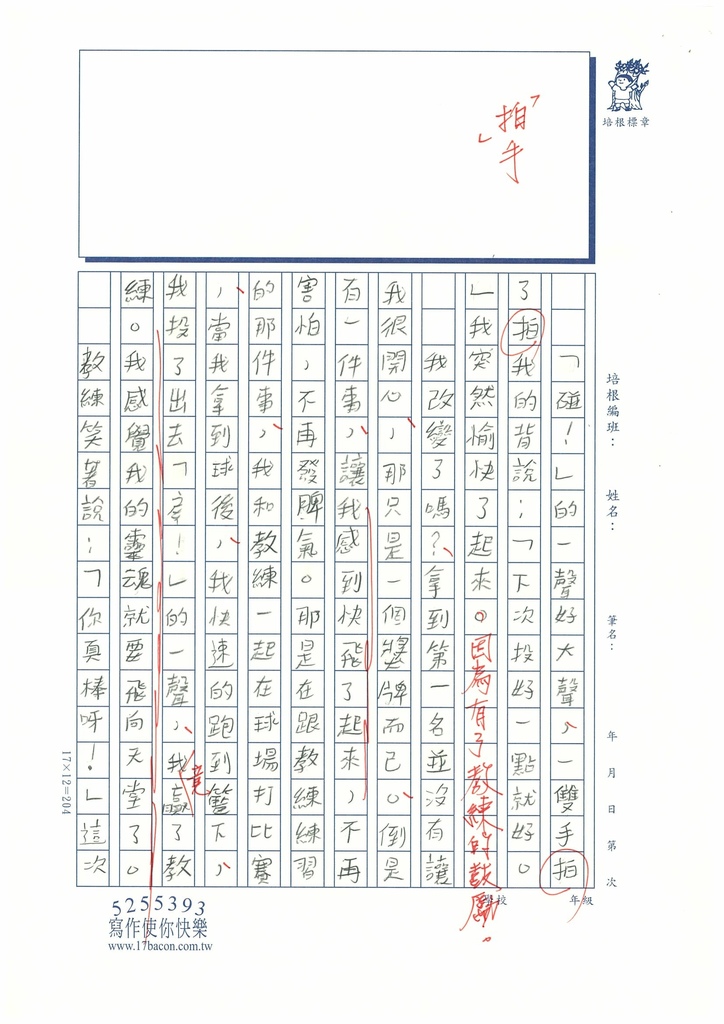 培根標章
「拍手」
培根編班：
姓名：
筆名：
年 月 日 第 次
學校 年級
「碰！」的一聲好大聲，一雙手拍
了拍我的背說：「下次投好一點就好。
」我突然愉快了起來。因為有了教練的鼓勵。
我改變了嗎？拿到第一名並沒有讓
我很開心，那只是一個獎牌而已。倒是
有一件事，讓我感到快飛了起來，不再
害怕，不再發脾氣。那是在跟教練練習
的那件事，我和教練一起在球場打比賽
，當我拿到球後，我快速的跑到籃下，
我投了出去「！」的一聲，我竟贏了教
練。我感覺我的靈魂就要飛向天堂了。
教練笑著說：「你真棒呀！」這次
17×12=204
5255393
寫作使你快樂
www.17bacon.com.tw